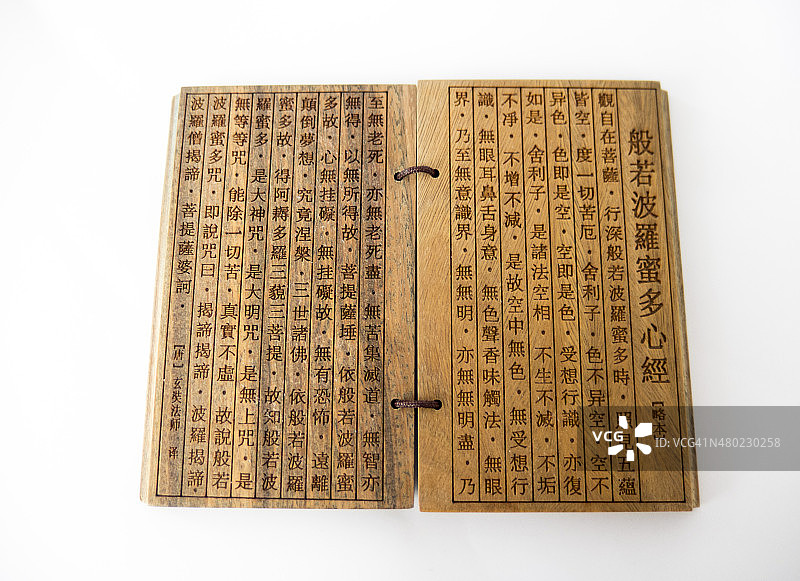 般若波羅蜜多心經【略本】
觀自在菩薩·行深般若波羅蜜多時·照見五蘊
皆空·度一切苦厄·舍利子·色不异空·空不
异色·色即是空·空即是色·受想行識·亦復
如是·舍利子·是諸法空相·不生不滅·不垢
不凈·不增不減·是故空中無色·無受想行
識·無眼耳鼻舌身意·無色聲香味觸法·無眼
界·乃至無意識界·無無明·亦無無明盡·乃
至無老死·亦無老死盡·無苦集滅道·無智亦
無得·以無所得故·菩提薩埵·依般若波羅蜜
多故·心無挂礙·無挂礙故·無有恐怖·遠離
顛倒夢想·究竟涅槃·三世諸佛·依般若波羅
蜜多故·得阿耨多羅三藐三菩提·故知般若波
羅蜜多·是大神咒·是大明咒·是無上咒·是
無等等咒·能除一切苦·真實不虛·故說般若
波羅蜜多咒·即說咒曰·揭諦揭諦·波羅揭諦·
波羅僧揭諦·菩提薩婆訶·【唐】玄奘法師·译
VCG
VCG.COM
ID: VCG41N480230258